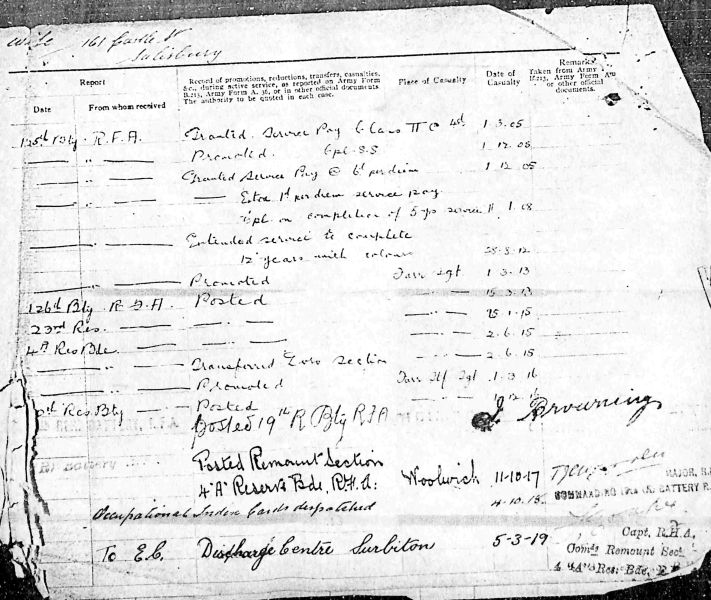 Wife 161 Castle St
Salisbury
Report
Record of promotions, reductions, transfers, casualties, &c., during active service, as reported on Army Form B.213, Army Form A. 36, or in other official documents. The authority to be quoted in each case.
Place of Casualty
Date of Casualty
Remarks
Taken from Army Form B.213, Army Form A. 36, or other official documents.
Date
From whom received
125th Bty R.F.A. Granted Service Pay Class II @ 4d 1 3 05
Promoted Cpl S.S 1 12 05
Granted Service Pay @ 6d per diem 1 12 05
Extra 1d per diem service pay
Cpl on completion of 5 yrs service 1 08
Extended service to complete
12 years with colours 28-3-12
Promoted Farr Sgt 1 3 13
126th Bty R.F.A. Posted 15 3 13
23rd Res. 15 1 15
4A Res Bde 2 6 15
Transferred section 2 6 15
Promoted Farr Stf Sgt 1 3 16
Res. Bty Posted 1 12 16
Posted 19th R Bty RFA
J Browning
Posted Remount Section
4"A" Reserve Bde, R.H.A. Woolwich 11-10-17
MAJOR, R.
COMMANDING BATTERY R.
Occupational Index Cards despatched 4-10-18
To E.C. Discharge Centre Surbiton 5-3-19
Capt, R.H.A,
Comdg Remount Sect.
4 "A" Res: Bde, R